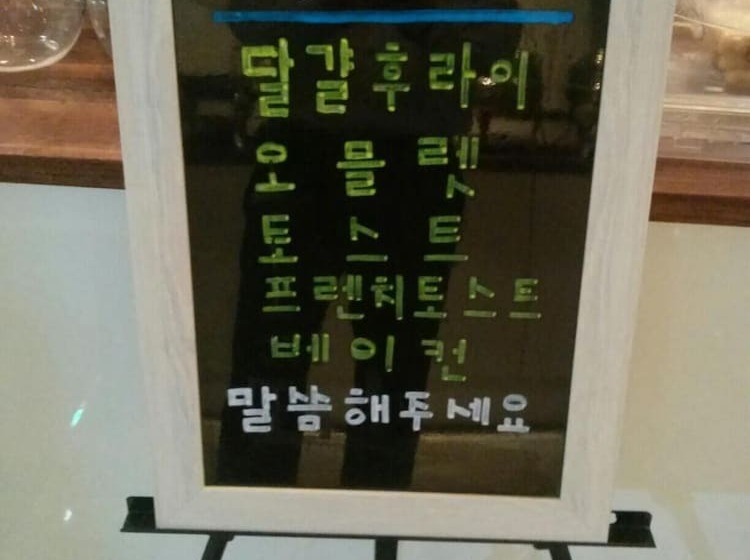 달걀후라이
오믈렛
토스트
프렌치토스트
베이컨
말씀해주세요